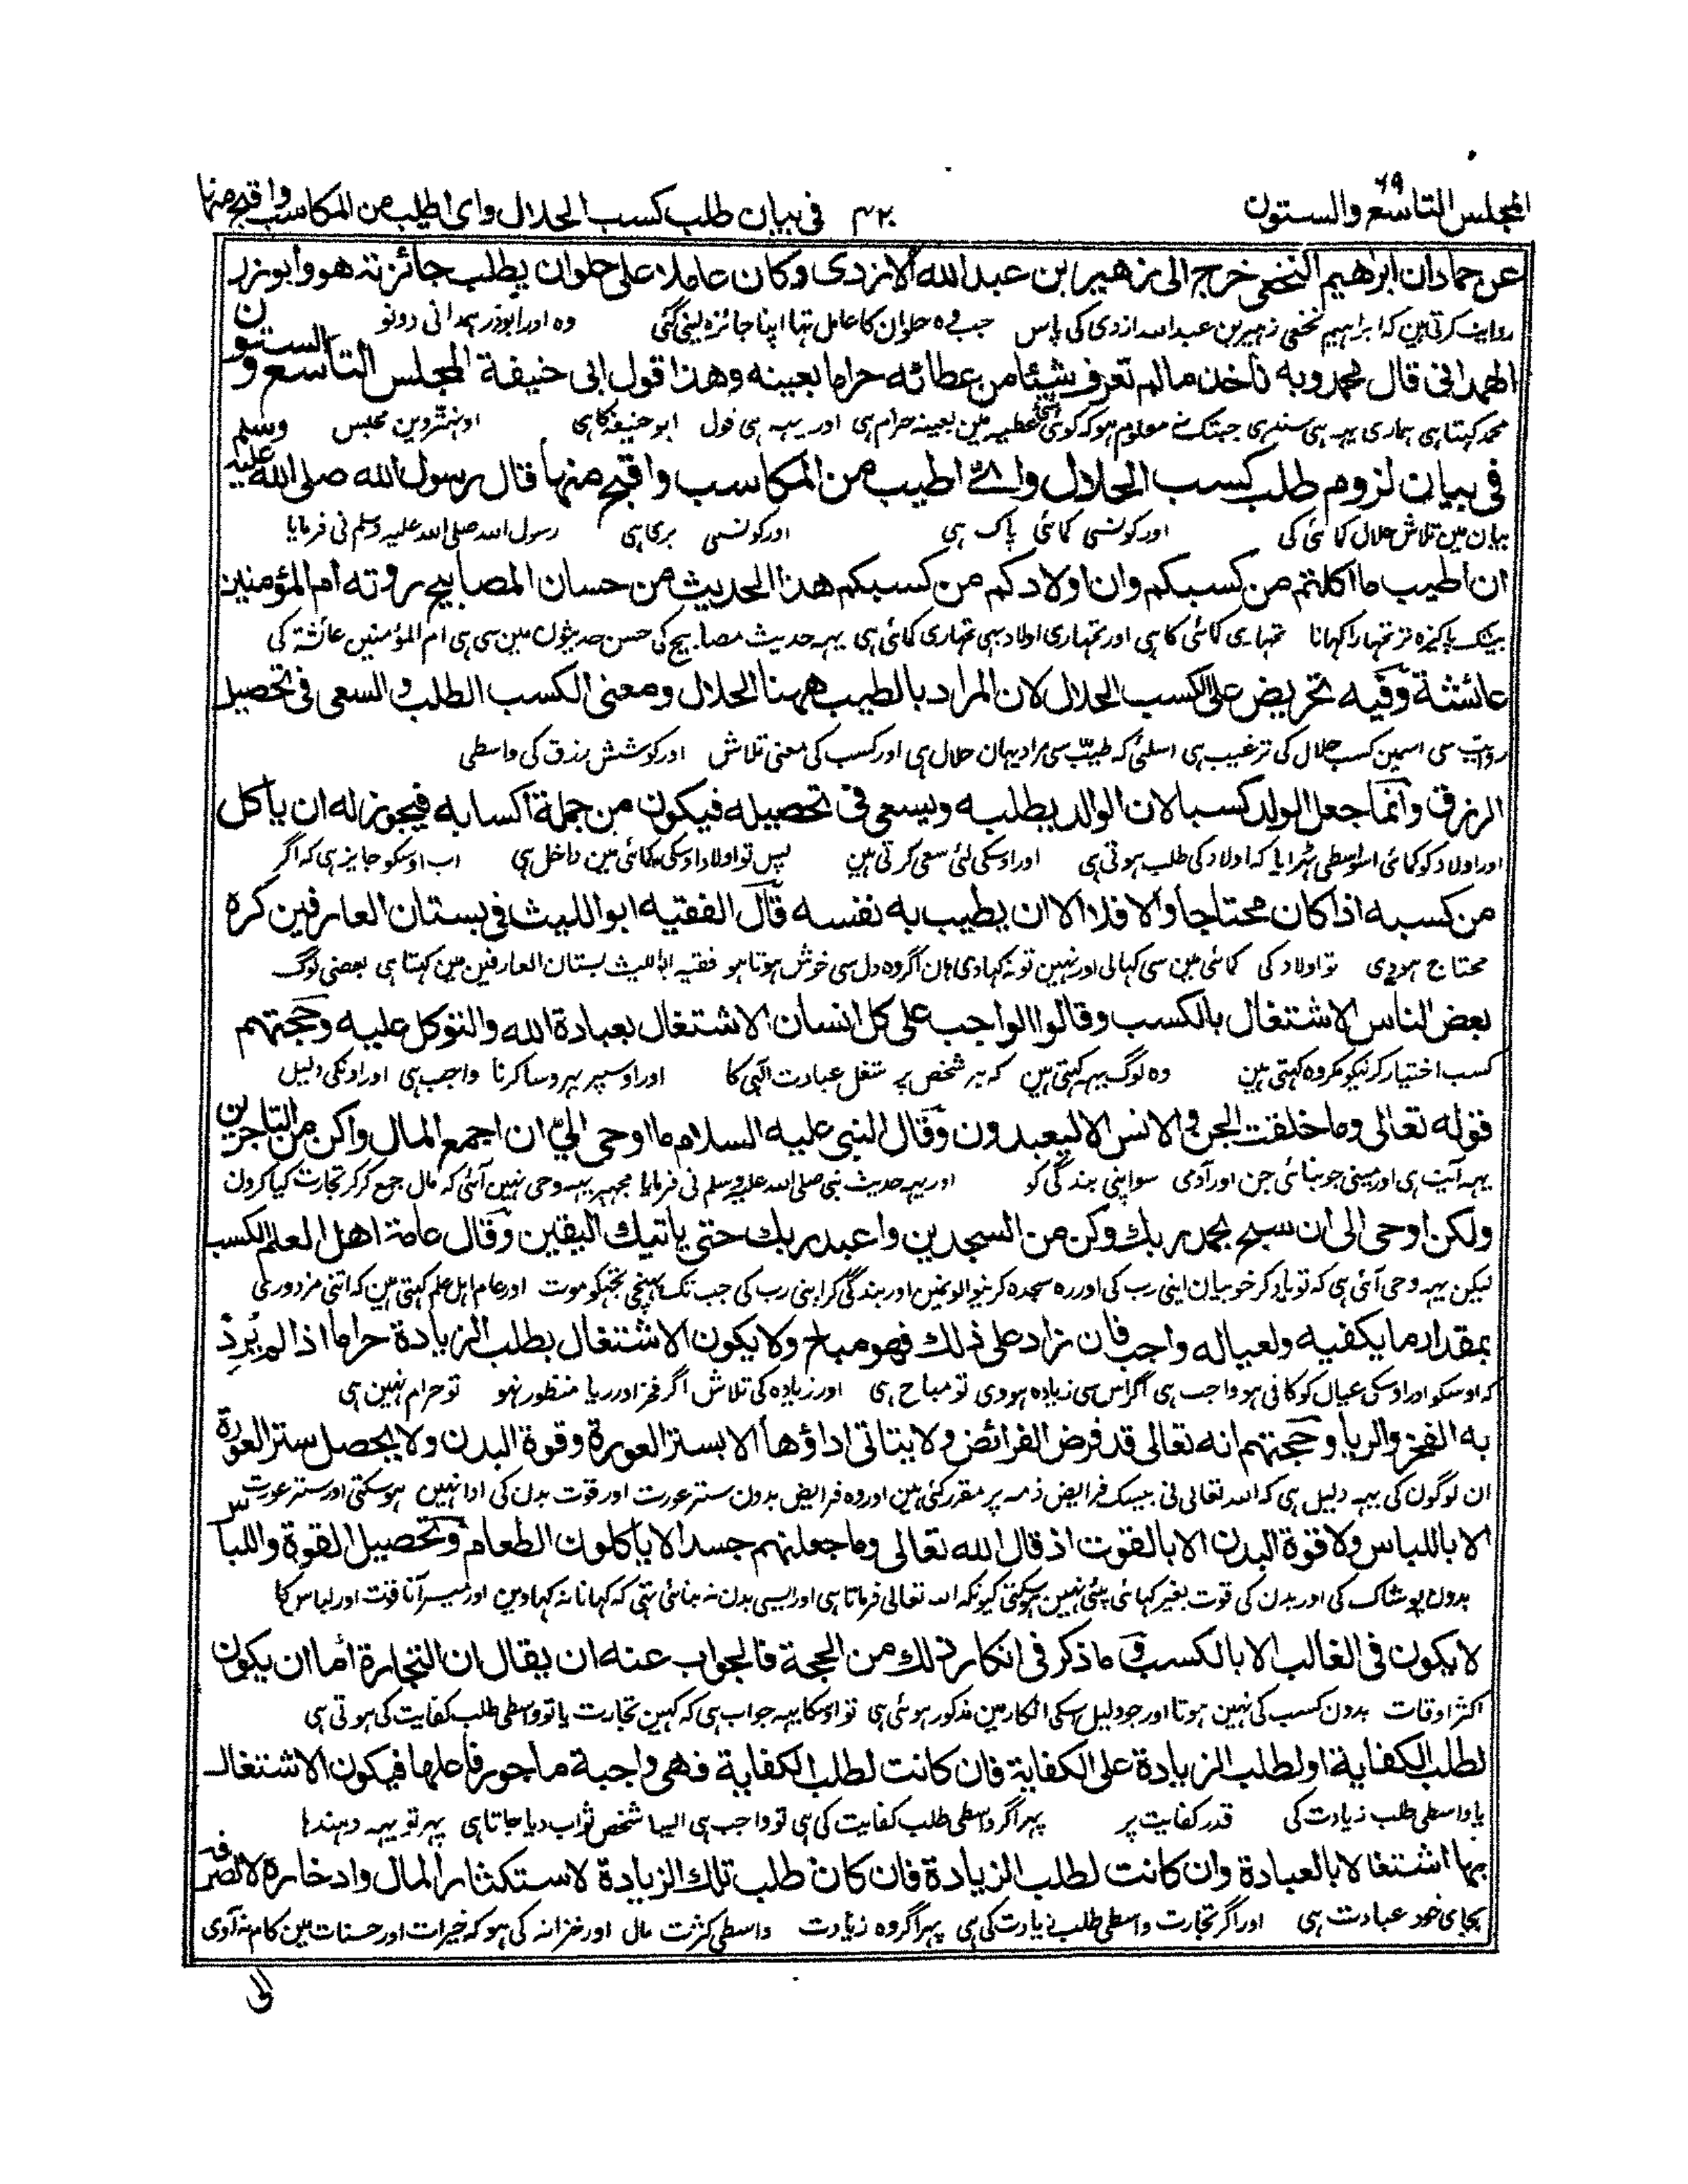 المجلس التاسع والستون ٦٩ ٤٢٠ فى بيان طلب كسب الحلال واى اطيب من المكاسب واقبح منها
عن حماد ان ابرهيم النخعى خرج الى زهير بن عبد الله الازدى وكان عاملا على حلوان يطلب جائزته هو وابوذر
روایت کرتی ہین کہ ابراہیم نخعی زہیر بن عبد اللہ ازدی کی پاس جب وہ حلوان کا عامل تہا اپنا جائزہ لینی گئی وہ اور ابوذر ہمدانی دونو
الهمدانى قال محمد وبه ناخذ مالم تعرف شيئا من عطائه حراما بعينه وهذا قول ابى حنيفة المجلس التاسع والستون
محمد کہتا ہی ہماری یہہ ہی سند ہی جبتک نے معلوم ہو کہ کوئی شی عطیہ مین بعینہ حرام ہی اور یہہ ہی قول ابو حنیفہ کا ہی اونہترین مجلس
فى بيان لزوم طلب كسب الحلال واىّ اطيب من المكاسب واقبح منها قال رسول الله صلى الله عليه وسلم
بیان مین تلاش حلال کمائی کی اور کونسی کمائی پاک ہی اور کونسی بری ہی رسول اللہ صلی اللہ علیہ وسلم نی فرمایا
ان اطيب ما اكلتم من كسبكم وان اولادكم من كسبكم هذا الحديث من حسان المصابيح روته ام المؤمنين
بیشک پاکیزہ تر تمہارا کہانا تمہاری کمائی کا ہی اور تمہاری اولاد بہی تمہاری کمائی ہی یہہ حدیث مصابیح کی حسن حدیثون مین سی ہی ام المؤمنین عائشہ کی
عائشة وفيه تحريض على الكسب الحلال لان المراد بالطيب ههنا الحلال ومعنى الكسب الطلب والسعى فى تحصيل
روایت سی اسمین کسب حلال کی ترغیب ہی اسلئی کہ طیب سی مراد یہان حلال ہی اور کسب کی معنی تلاش اور کوشش رزق کی واسطی
الرزق وانما جعل الولد كسبا لان الوالد يطلبه ويسعى فى تحصيله فيكون من جملة اكسابه فيجوز له ان ياكل
اور اولاد کو کمائی اسواسطی ٹہرایا کہ اولاد کی طلب ہوتی ہی اور اوسکی لئی سعی کرتی ہین پس تو اولاد اوسکی کمائی مین داخل ہی اب اوسکو جایز ہی کہ اگر
من كسبه اذا كان محتاجا والا فلا الا ان يطيب به نفسه قال الفقيه ابو الليث فى بستان العارفين كره
محتاج ہووی تو اولاد کی کمائی مین سی کہالی اور نہین تو نہ کہاوی ہان اگر وہ دل سی خوش ہوتا ہو فقیہ ابو اللیث بستان العارفین مین کہتا ہی بعضی لوگ
بعض الناس الاشتغال بالكسب وقالوا الواجب على كل انسان الاشتغال بعبادة الله والتوكل عليه وحجتهم
کسب اختیار کرنیکو مکروہ کہتی ہین وہ لوگ یہہ کہتی ہین کہ ہر شخص پر شغل عبادت الٰہی کا اور اوسپر بہروسا کرنا واجب ہی اور اونکی دلیل
قوله تعالى وما خلقت الجن والانس الا ليعبدون وقال النبى عليه السلام ما اوحى الىّ ان اجمع المال واكن من التاجرين
یہہ آیت ہی اور مینی جو بنائی جن اور آدمی سو اپنی بندگی کو اور یہہ حدیث نبی صلی اللہ علیہ وسلم نی فرمایا مجہپر یہہ وحی نہین آئی کہ مال جمع کر کر تجارت کیا کرون
ولكن اوحى الى ان سبح بحمد ربك وكن من السجدين واعبد ربك حتى ياتيك اليقين وقال عامة اهل العلم الكسب
لیکن یہہ وحی آئی ہی کہ تو یاد کر خوبیان اپنی رب کی اور رہ سجدہ کرنیوالونمین اور بندگی کر اپنی رب کی جب تک پہنچی تجہکو موت اور عام اہل علم کہتی ہین کہ اتنی مزدوری
بمقدار ما يكفيه ولعياله واجب فان زاد على ذلك فهو مباح ولا يكون الاشتغال بطلب الزيادة حراما اذا لم يُرِدْ
کہ اوسکو اور اوسکی عیال کو کافی ہو واجب ہی اگر اس سی زیادہ ہووی تو مباح ہی اور زیادہ کی تلاش اگر فخر اور ریا منظور نہو تو حرام نہین ہی
به الفخر والريا وحجتهم انه تعالى قد فرض الفرائض ولا يتاتى اداؤها الا بستر العورة وقوة البدن ولا يحصل ستر العورة
ان لوگون کی یہہ دلیل ہی کہ اللہ تعالی نی بیشک فرایض ذمہ پر مقرر کئی ہین اور وہ فرایض بدون ستر عورت اور قوت بدن کی ادا نہین ہوسکتی اور ستر عورت
الا باللباس ولا قوة البدن الا بالقوت اذ قال الله تعالى وما جعلنهم جسدا لا ياكلون الطعام وتحصيل القوة واللباس
بدون پوشاک کی اور بدن کی قوت بغیر کہائی پئی نہین ہوسکتی کیونکہ اللہ تعالی فرماتا ہی اور ایسی بدن نہ بنائی تہی کہ کہانا نہ کہاوین اور میسر آنا قوت اور لباس کا
لا يكون فى الغالب الا بالكسب وما ذكر فى انكار ذلك من الحجة فالجواب عنه ان يقال ان التجارة اما ان يكون
اکثر اوقات بدون کسب کی نہین ہوتا اور جو دلیل اسکی انکار مین مذکور ہوئی ہی تو اوسکا یہہ جواب ہی کہ کہین تجارت یا تو واسطی طلب کفایت کی ہوتی ہی
لطلب الكفاية او لطلب الزيادة على الكفاية فان كانت لطلب الكفاية فهى واجبة ماجور فاعلها فيكون الاشتغال
یا واسطی طلب زیادت کی قدر کفایت پر پہر اگر واسطی طلب کفایت کی ہی تو واجب ہی ایسا شخص ثواب دیا جاتا ہی پہر تو یہہ دہندا
بها اشتغالا بالعبادة وان كانت لطلب الزيادة فان كان طلب تلك الزيادة لاستكثار المال وادخاره لا لصرفه
بجای خود عبادت ہی اور اگر تجارت واسطی طلب زیادت کی ہی پہر اگر وہ زیادت واسطی کثرت مال اور خزانہ کی ہو کہ خیرات اور حسنات مین کام نہ آوی
الى